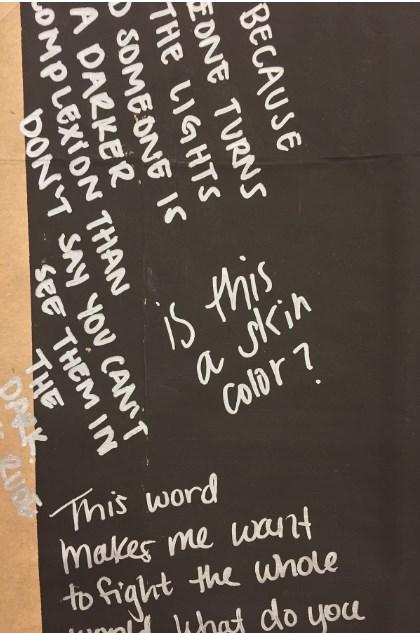 BECAUSE
EONE TURNS
THE LIGHTS
SOMEONE IS
A DARKER
COMPLEXION THAN
DON'T SAY YOU CAN'T
SEE THEM IN
THE
DARK.
RUDE
is this
a skin
color?
This word
makes me want
to fight the whole
world. What do you